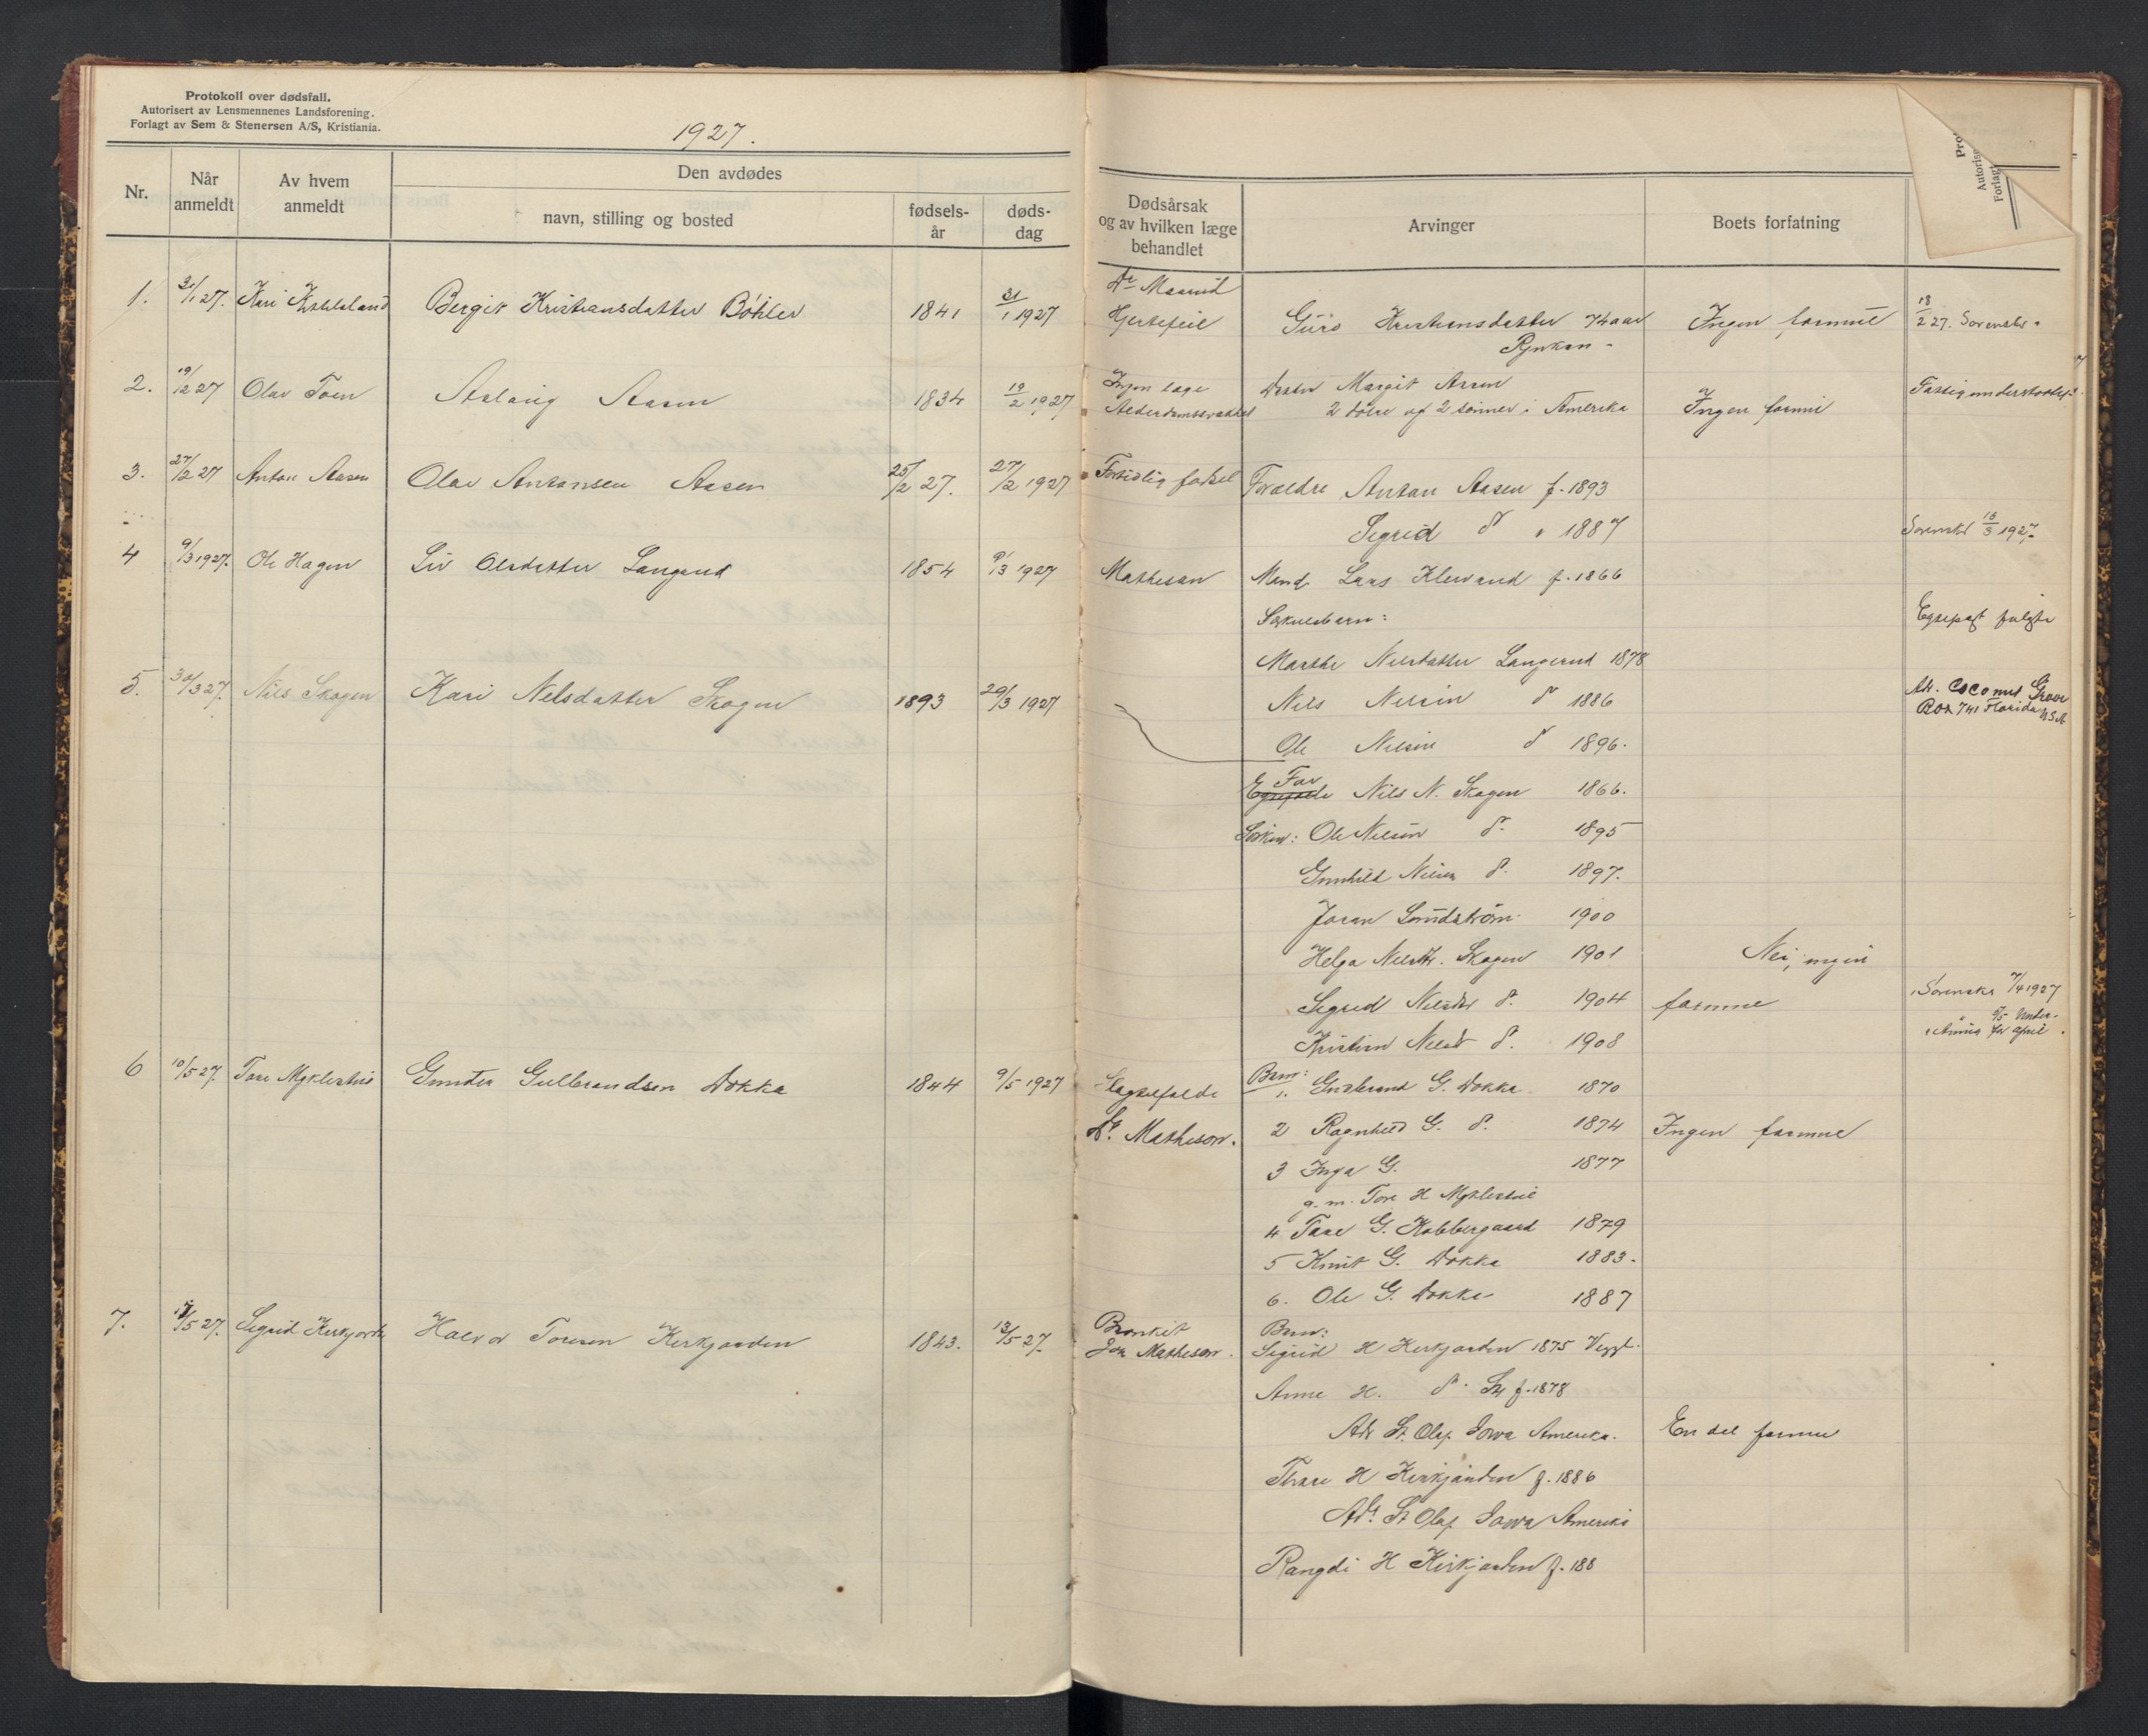 Protokoll over dødsfall.
Autorisert av Lensmennenes Landsforening.
Forlagt av Sem & Stenersen A/S, Kristiania.
1927.
Nr.
Når
anmeldt
Av hvem
anmeldt
Den avdødes
navn, stilling og bosted
fødsels-
år
døds-
dag
Dødsårsak
og av hvilken læge
behandlet
Arvinger
Boets forfatning
Pro
Autorise
Forlagt
1. 31/1 27. Kari
Bergit Kristiansdatter Böhler 1841 31/1 1927
Hjertefeil
Guro Kristiansdatter 74 aar
Rjukan
Ingen formue
18/2 27. Sorenskr.
2. 19/2 27 Olav Toen
Aslaug Aasen 1834 19/2 1927
Ingen læge
Alderdomssvakhet
Datter Margit Aasen
2 døtre og 2 sønner i Amerika
Ingen formue
3. 27/2 27 Anton Aasen
Olav Antonsen Aasen 25/2 27. 27/2 1927
Fortidlig fødsel
Foreldre Anton Aasen f. 1893
Sigrid d " 1887
Sorenskr 18/3 1927.
4 9/3 1927. Ole Hagen
Liv Olsdatter Langerud 1854 9/3 1927
Matheson
Mand Lars Klevrud f. 1866
Særkuldbarn:
Marthe Nilsdatter Langerud 1878
Nils Nilsen d 1886
Ole Nilsen d 1896.
Egtepagt følgte
Adr. Coconut Grove
Box 741 Florida USA
5. 30/3 27. Nils Skogen
Kari Nelsdatter Skogen 1893 29/3 1927
Far
Nils N. Skogen 1866.
Søsken: Ole Nilsen d. 1895
Gunhild Nilsen d. 1897.
Joran Lundström. 1900
Helga Nilsdtr. Skogen 1901
Sigrid Nilsdtr d. 1904
Kristian Nilsen d. 1908
Nei, ingen
formue
Sorenskr 7/4 1927
6 10/5 27. Tore Myklestue
Gunder Gulbrandsen Dokka 1844 9/5 1927
Slagtilfælde
Dr. Matheson.
Barn:
1. Gulbrand G. Dokka 1870
2 Ragnhild G. d. 1874
3 Inga G. 1877
g. m. Tore H Myklestue
4 Tore G. Kobbergaard 1879
5 Knut G. Dokka 1883.
6. Ole G. Dokka 1887
Ingen formue
7. /5 27. Sigrid Kirkjorden
Halvor Toresen Kirkjorden 1843. 13/5 27.
Bronkit
Matheson.
Barn:
Sigrid H Kirkjorden 1875
Anne H. d. f. 1878
Adr St. Olaf. Iowa Amerika.
Thore H Kirkjorden f. 1886
Adr. St Olaf Iowa Amerika
Rangdi H Kirkjorden f. 188
En del formue